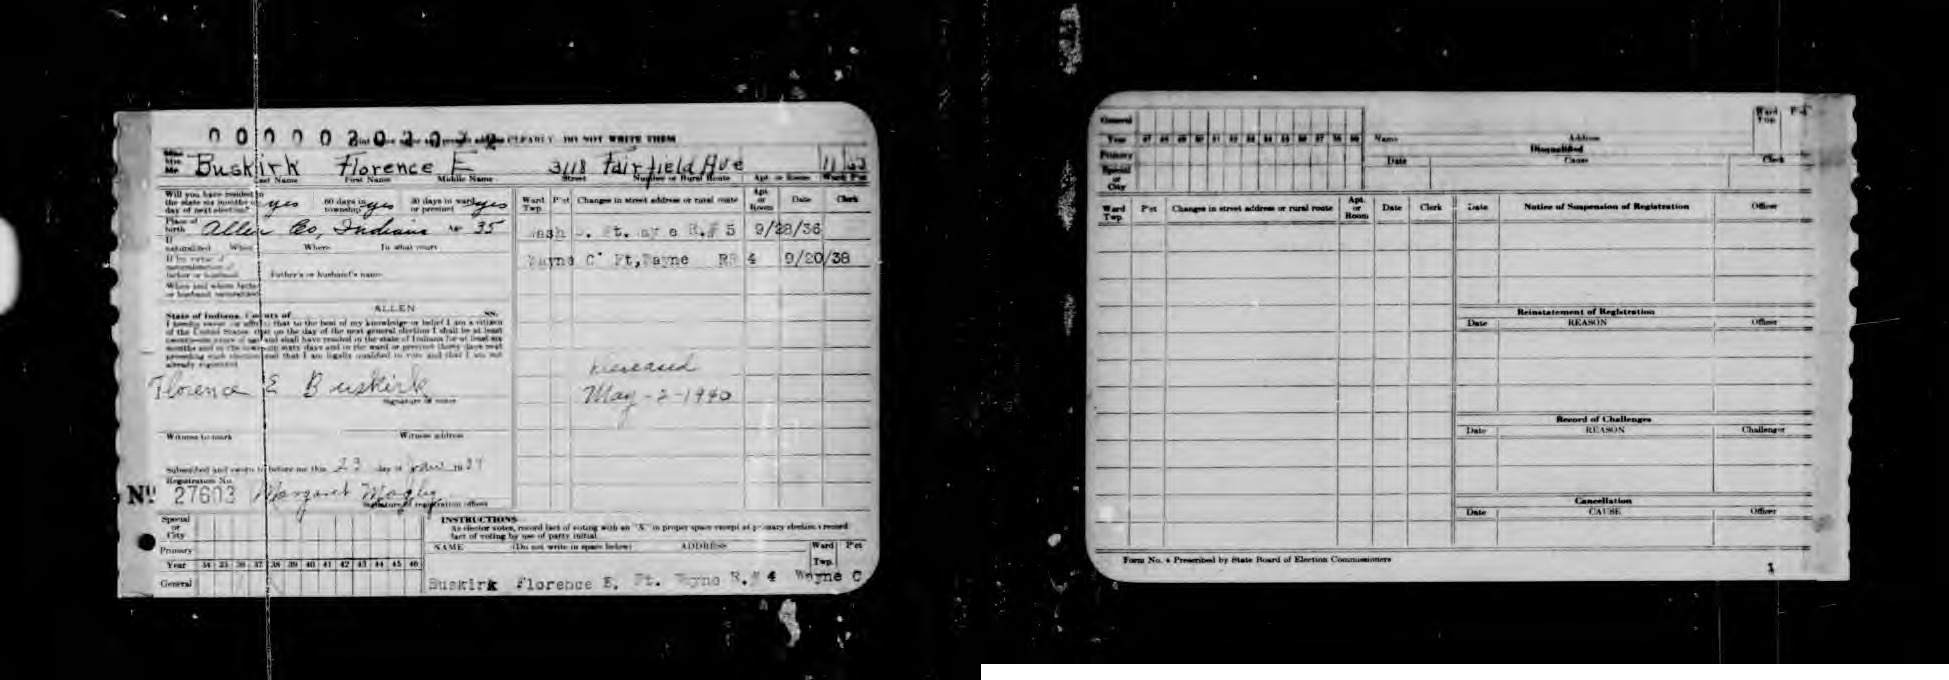 PRINT OR TYPE CLEARLY DO NOT WRITE THEM
Miss
Mrs.
Mr. Buskirk Florence E 3118 Fairfield Ave 11
Last Name First Name Middle Name Street Number or Rural Route Apt. or Room Ward Pct
Will you have resided in
the state six months on
day of next election? yes 60 days in township yes 30 days in ward or precinct yes
Place of birth Allen Co, Indiana Age 35
If naturalized When Where In what court
If by virtue of
naturalization of
father or husband Father's or husband's name
When and where father
or husband naturalized
ALLEN
State of Indiana, County of SS.
I hereby swear or affirm that to the best of my knowledge or belief I am a citizen
of the United States, that on the day of the next general election I shall be at least
twenty-one years of age and shall have resided in the state of Indiana for at least six
months and in the township sixty days and in the ward or precinct thirty days next
preceding such election and that I am legally qualified to vote and that I am not
already registered
Florence E Buskirk
Signature of voter
Witness to mark Witness address
Subscribed and sworn to before me this 23 day of Jan
Registration No.
No 27603 Margaret
Signature of registration officer
Ward Twp. P'ct Changes in street address or rural route Apt. or Room Date Clerk
Wash Ft. Wayne R.# 5 9/28/36
Wayne C Ft, Wayne RR 4 9/20/38
Deceased
May-2-1940
Special
or
City
Primary
Year 34 35 36 37 38 39 40 41 42 43 44 45 46
General
INSTRUCTIONS
As elector votes, record fact of voting with an "X" in proper space except at primary election record
fact of voting by use of party initial
NAME (Do not write in space below) ADDRESS Ward Twp. P'ct
Buskirk Florence E. Ft. Wayne R.# 4 Wayne C
General
Year 47 48 49 50 51 52 53 54 55 56 57 58 59
Primary
Special
or
City
Name Address Ward Twp.
Disqualified
Date Cause Clerk
Ward Twp. P'ct Changes in street address or rural route Apt. or Room Date Clerk
Date Notice of Suspension of Registration Officer
Reinstatement of Registration
Date REASON Officer
Record of Challenges
Date REASON Challenger
Cancellation
Date CAUSE Officer
Form No. 4 Prescribed by State Board of Election Commissioners
1